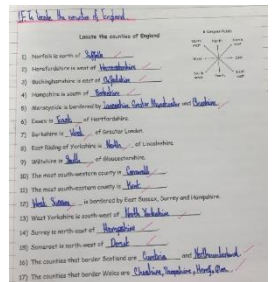 LF: To locate the counties of England.
Locate the counties of England
A Compass Points
North
North west
North east
West
East
South west
South east
South
1) Norfolk is north of Suffolk
2) Herefordshire is west of Worcestershire
3) Buckinghamshire is east of Oxfordshire
4) Hampshire is south of Berkshire
5) Merseyside is bordered by Lancashire, Greater Manchester and Cheshire
6) Essex is East of Hertfordshire.
7) Berkshire is West of Greater London.
8) East Riding of Yorkshire is North of Lincolnshire.
9) Wiltshire is South of Gloucestershire.
10) The most south-western county is Cornwall
11) The most south-eastern county is Kent
12) West Sussex is bordered by East Sussex, Surrey and Hampshire.
13) West Yorkshire is south-west of North Yorkshire
14) Surrey is north-east of Hampshire
15) Somerset is north-west of Dorset
16) The counties that border Scotland are Cumbria and Northumberland.
17) The counties that border Wales are Cheshire, Shropshire,